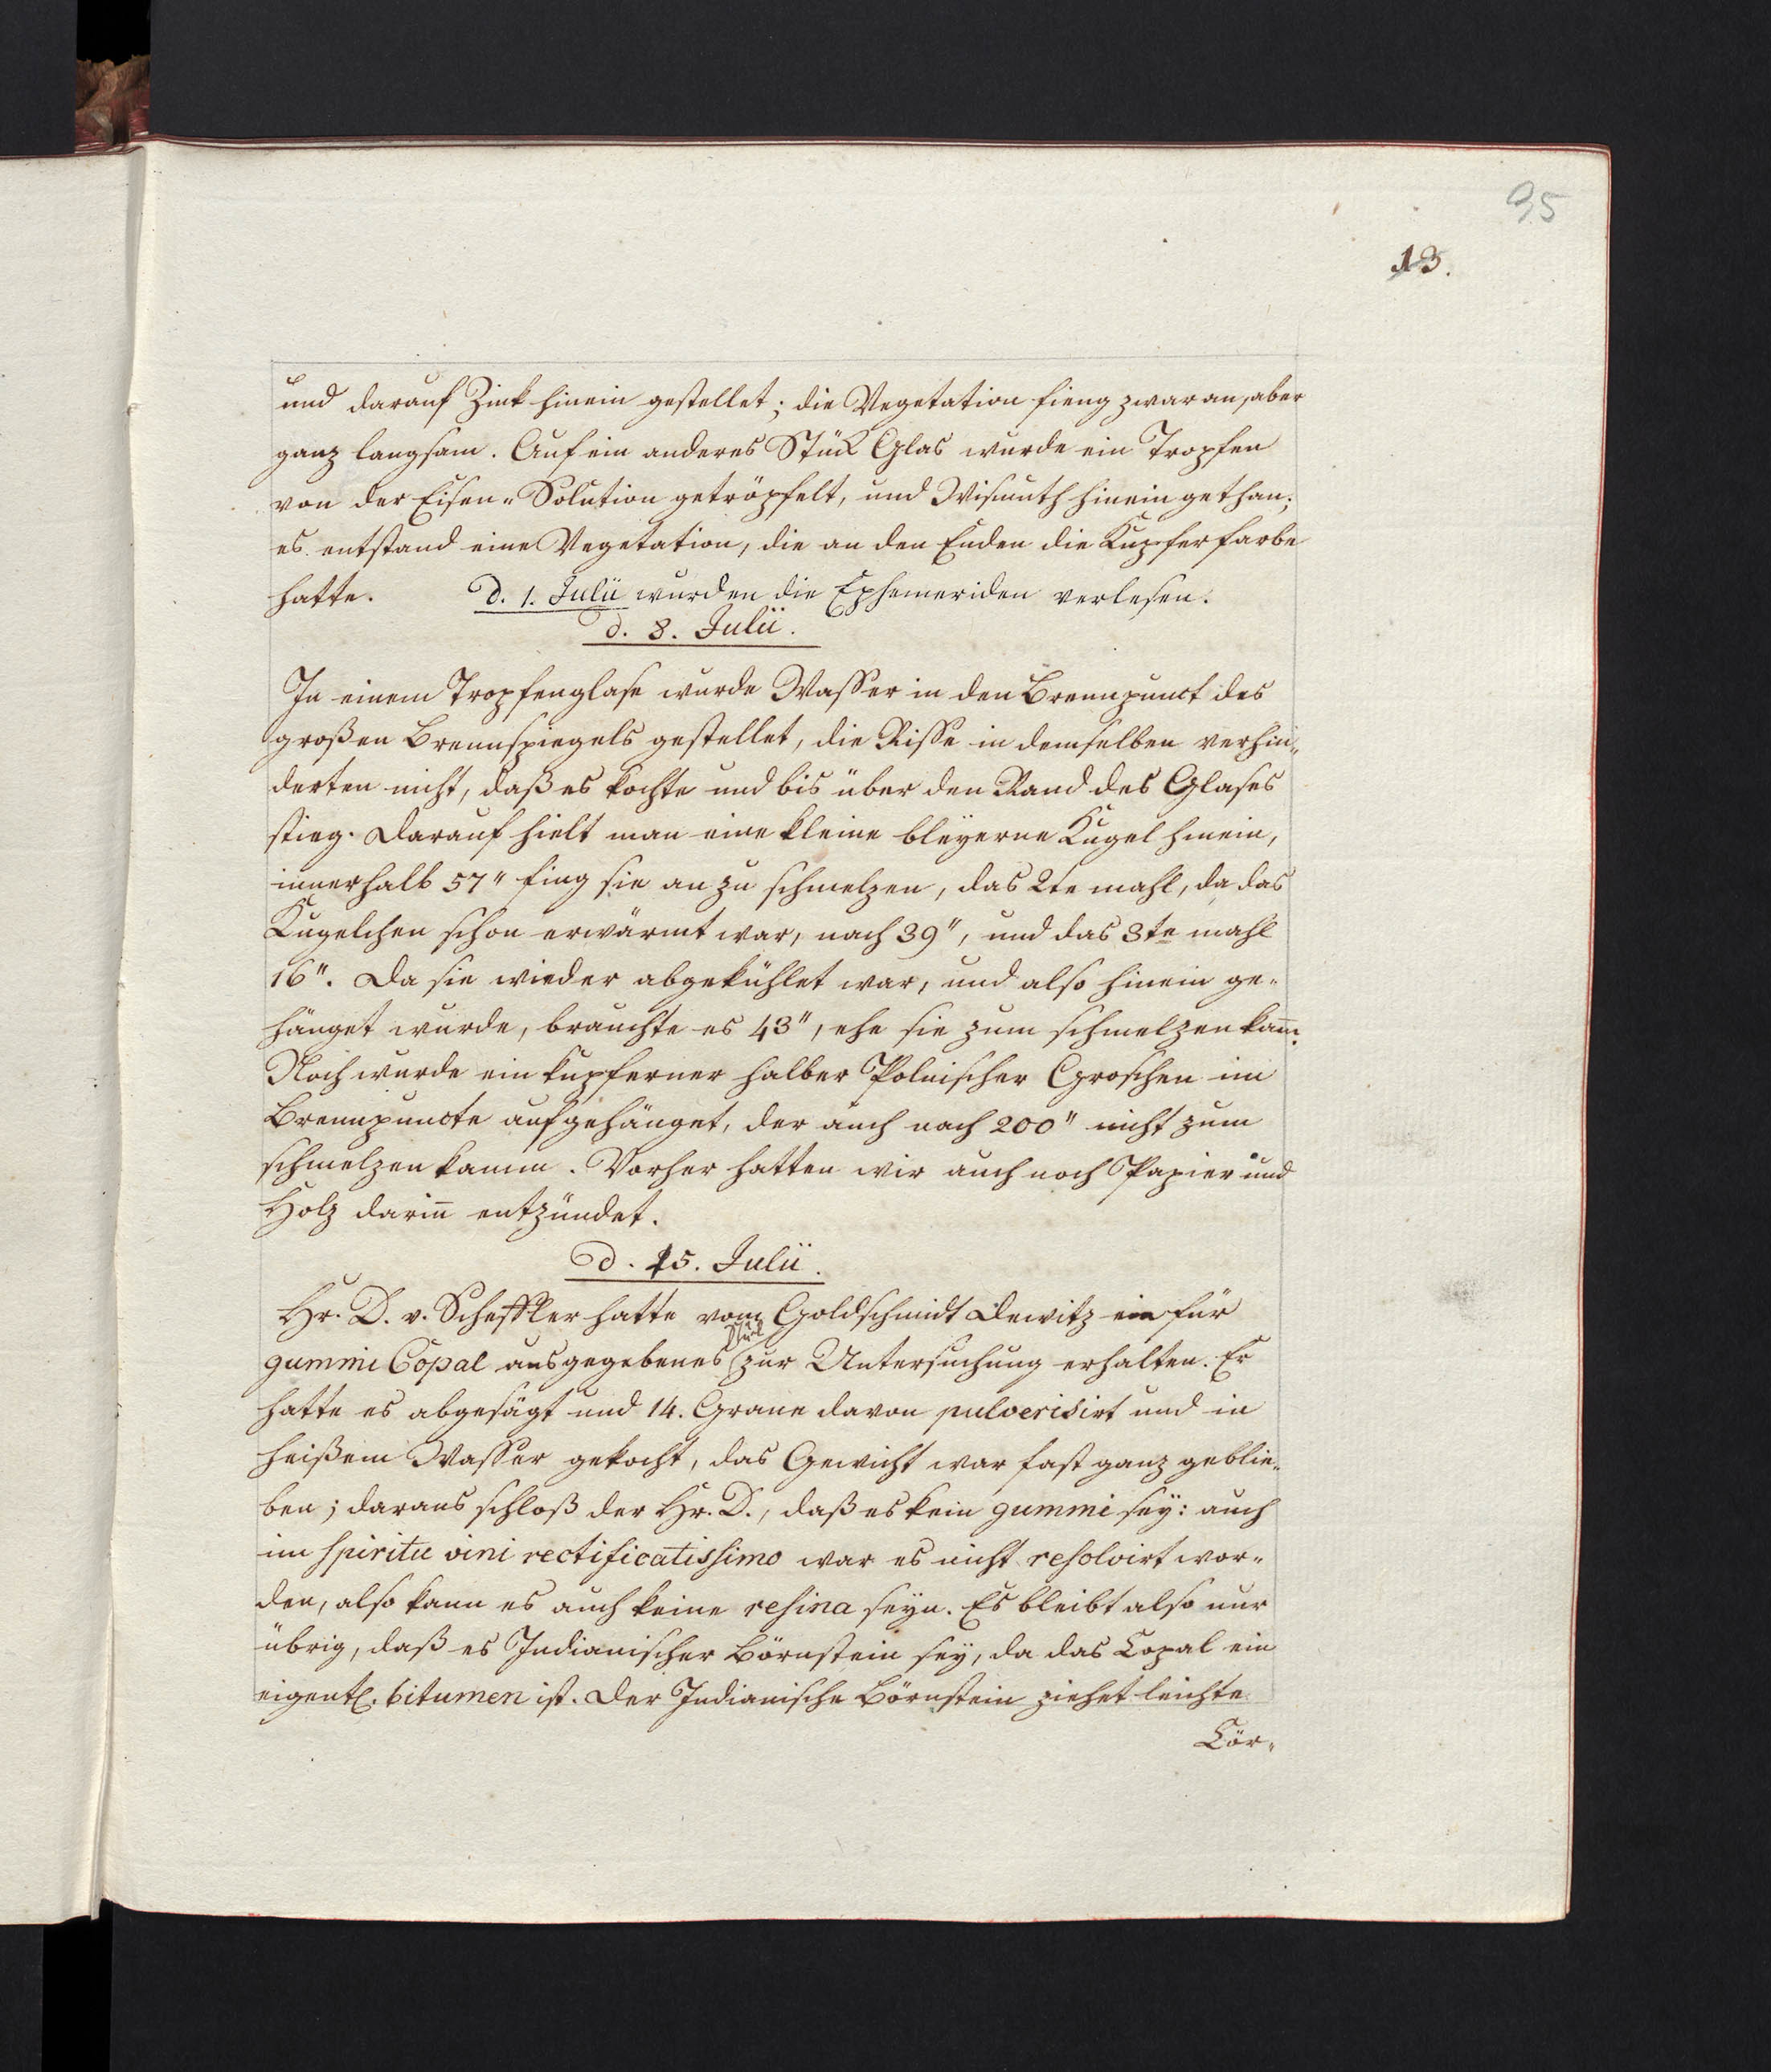 95
13.
und darauf Zink hinein gestellet; die Vegetation fieng zwar an, aber
ganz langsam. Auf ein anderes Stück Glas wurde ein Tropfen
von der Eisen-Solution getröpfelt, und Wismuth hinein gethan;
es entstand eine Vegetation, die an den Enden die Kupferfarbe
hatte. d. 1. Julii wurden die Ephemeriden verlesen.
d. 8. Julii.
In einem Tropfenglase wurde Wasser in den Brennpunct des
großen Brennspiegels gestellet, die Risse in demselben verhin-
derten nicht, daß es kochte und bis über den Rand des Glases
stieg. Darauf hielt man eine kleine bleyerne Kugel hinein,
innerhalb 57" fing sie an zu schmelzen, das 2te mahl, da das
Kugelchen schon erwärmt war, nach 39", und das 3te mahl
16". Da sie wieder abgekühlet war, und also hinein ge-
hänget wurde, brauchte es 43", ehe sie zum schmelzen kam̅.
Noch wurde ein kupferner halber Polnischer Groschen im
Brennpuncte aufgehänget, der auch nach 200" nicht zum
schmelzen kamm. Vorher hatten wir auch noch Papier und
Holz darin̅ entzündet.
d. 15. Julii.
Hr. D. v. Scheffler hatte vom Goldschmidt Dewitz ein für
gummi Copal ausgegebenes Stük zur Untersuchung erhalten. Er
hatte es abgesägt und 14. Grane davon pulverisirt und in
heißem Wasser gekocht, das Gewicht war fast ganz geblie-
ben; daraus schloß der Hr. D., daß es kein gummi sey: auch
im spiritu vini rectificatissimo war es nicht resolvirt wor-
den, also kann es auch keine resina seyn. Es bleibt also nur
übrig, daß es Indianischer Börnstein sey, da das Copal ein
eigentl. bitumen ist. Der Indianische Börnstein ziehet leichte
Cör-